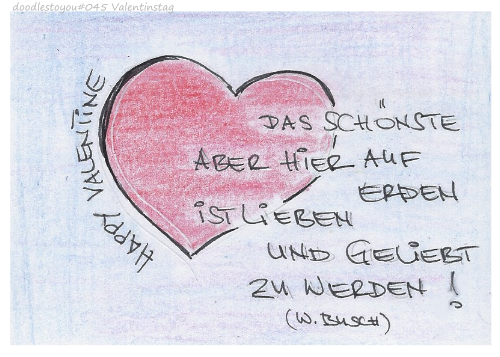 doodlestoyou#045 Valentinstag
HAPPY VALENTINE
DAS SCHÖNSTE
ABER HIER AUF
ERDEN
IST LIEBEN
UND GELIEBT
ZU WERDEN !
(W. BUSCH)